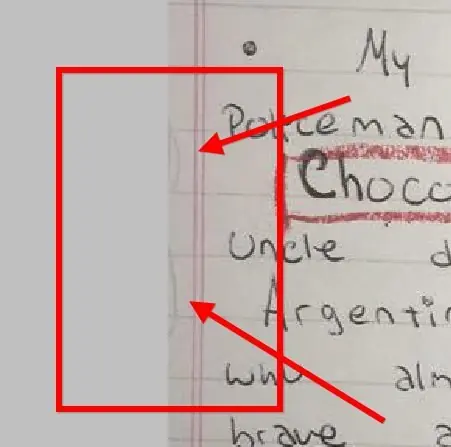 • My
Policeman
Choco
Uncle d
Argentin
who alm
brave a